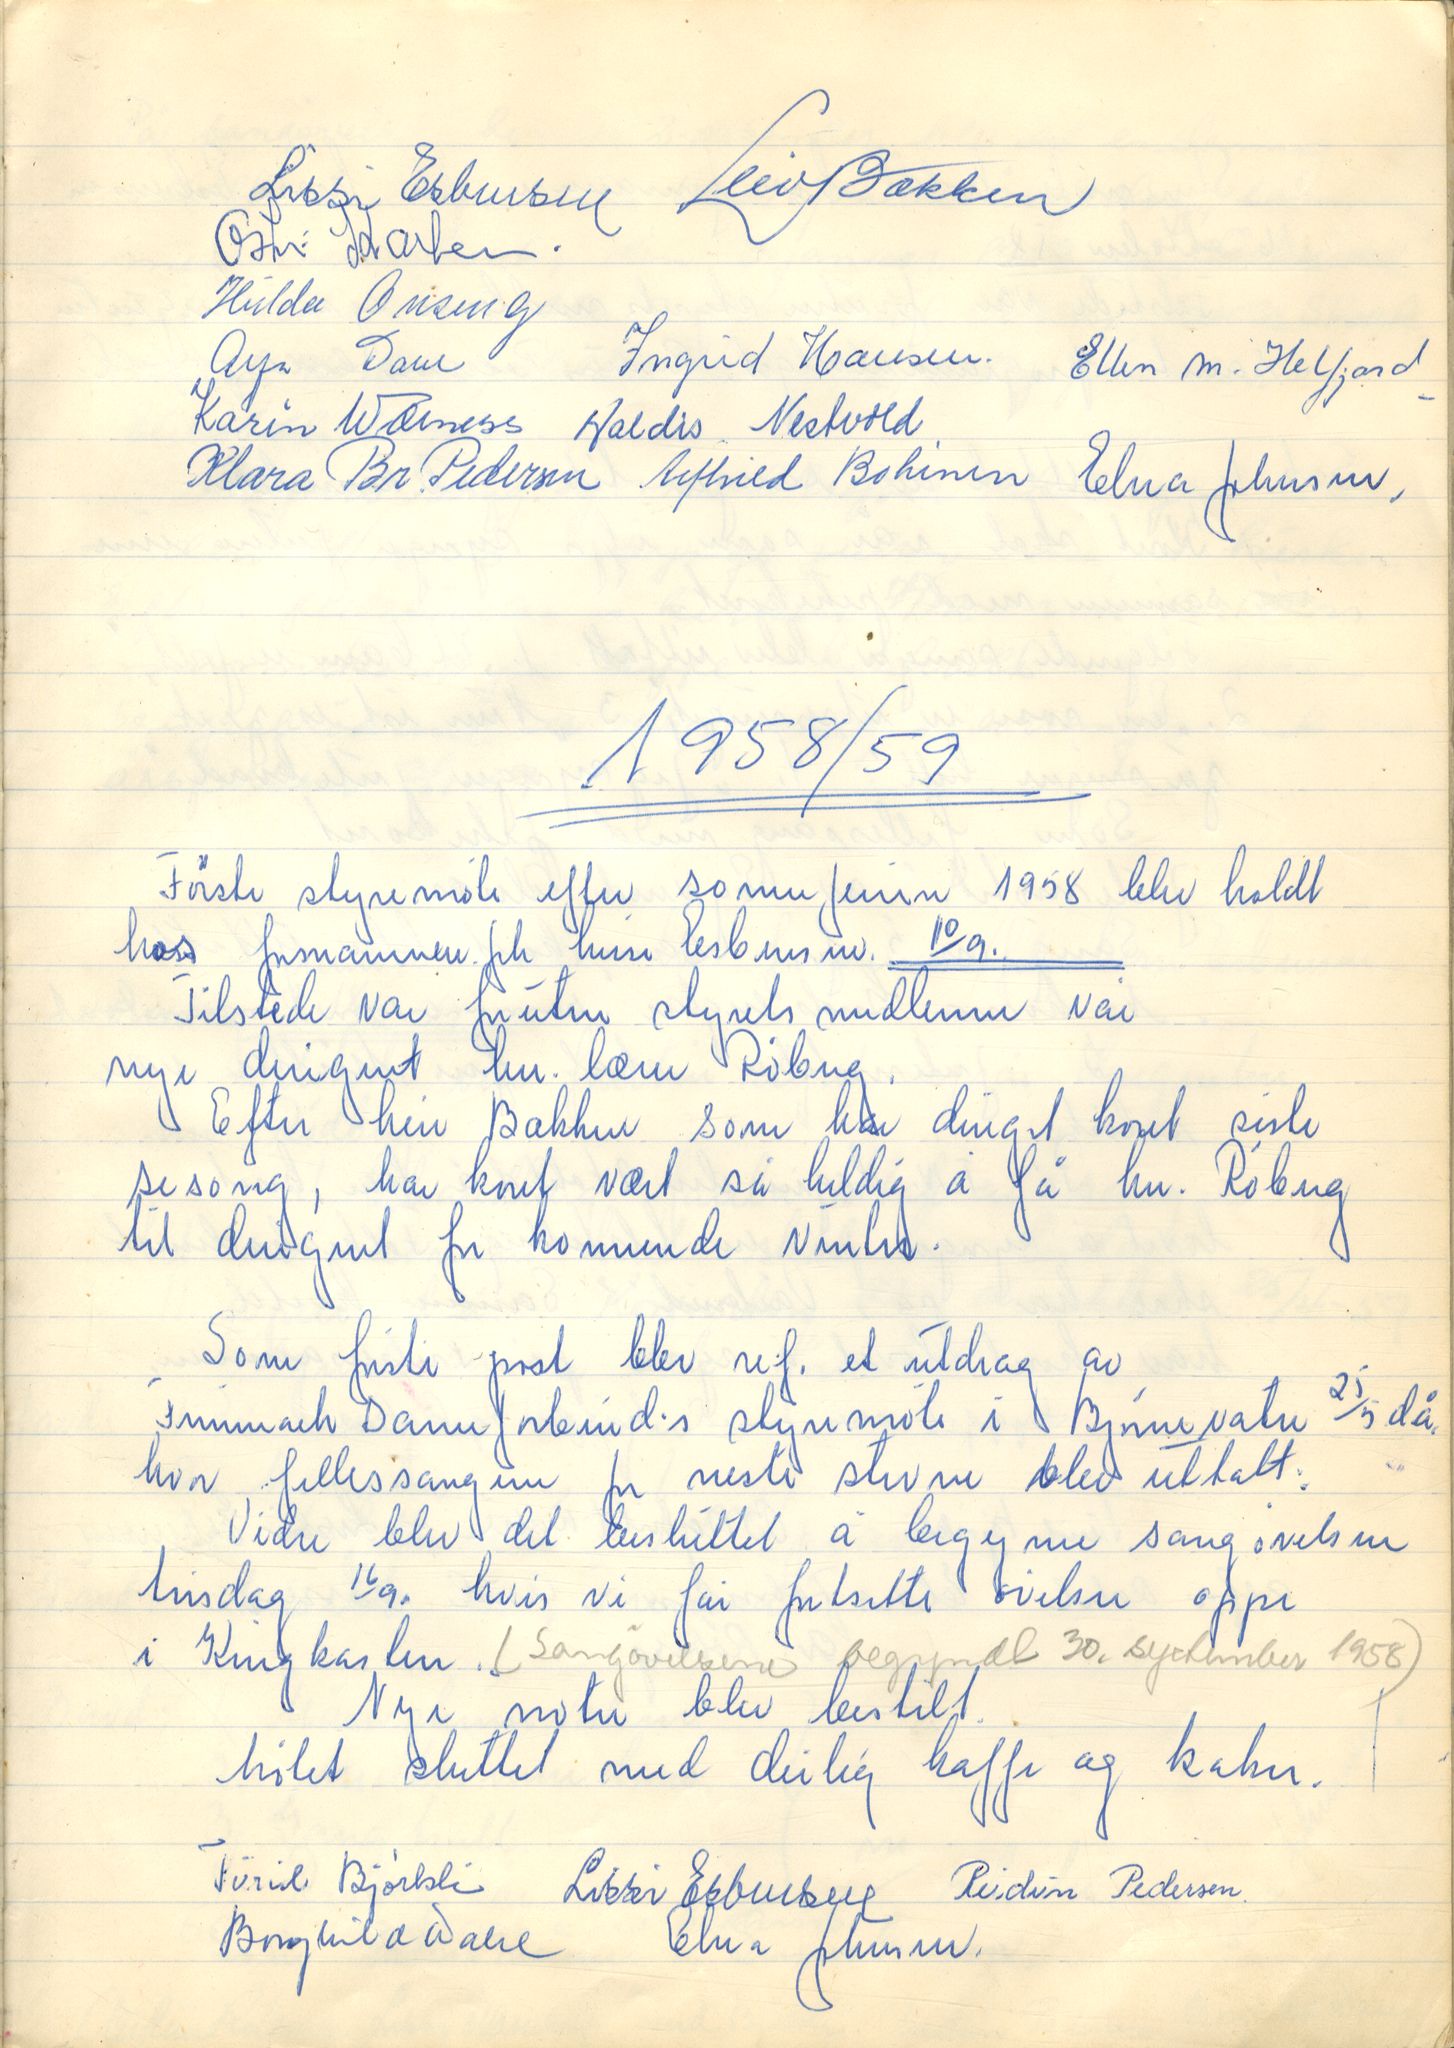 Lissi Esbensen Leiv Bakken
Hilda Onseng
Aya Dave Ingrid Hansen. Ellen M. Helfjord
Karin Wærness Valdis Nestvold
Klara Br. Pedersen Alfhild Bohinen Edna Johnsen,
1958/59
Første styremöte efter somerferien 1958 blev holdt
hoss formannen frk Lissi Esbensen. 10/9.
Tilstede var foruten styrets medlemer vår
nye dirigent hr. lærer Röberg.
Efter Leiv Bakken som har dirigert koret siste
sesong, har koret vært så heldig å få hr. Röberg
til dirigent for kommende vinter.
Som förste post blev ref. et utdrag av
Finnmark Dameforbund's styremöte i Björnevatn 25/5 då.
hvor fellessangene for neste stevne blev uttatt.
Vidre blev det besluttet å begynne sangövelsen
tirsdag 16/9. hvis vi får fortsette övelsen oppe
i Kingkasten. (Sangövelsene begyndt 30. september 1958)
Nye noter blev bestilt.
Mötet sluttet med deilig kaffe og kaker.
Turid Björkli Lissi Esbensen Reidun Pedersen.
Borghild Edna Johnsen.